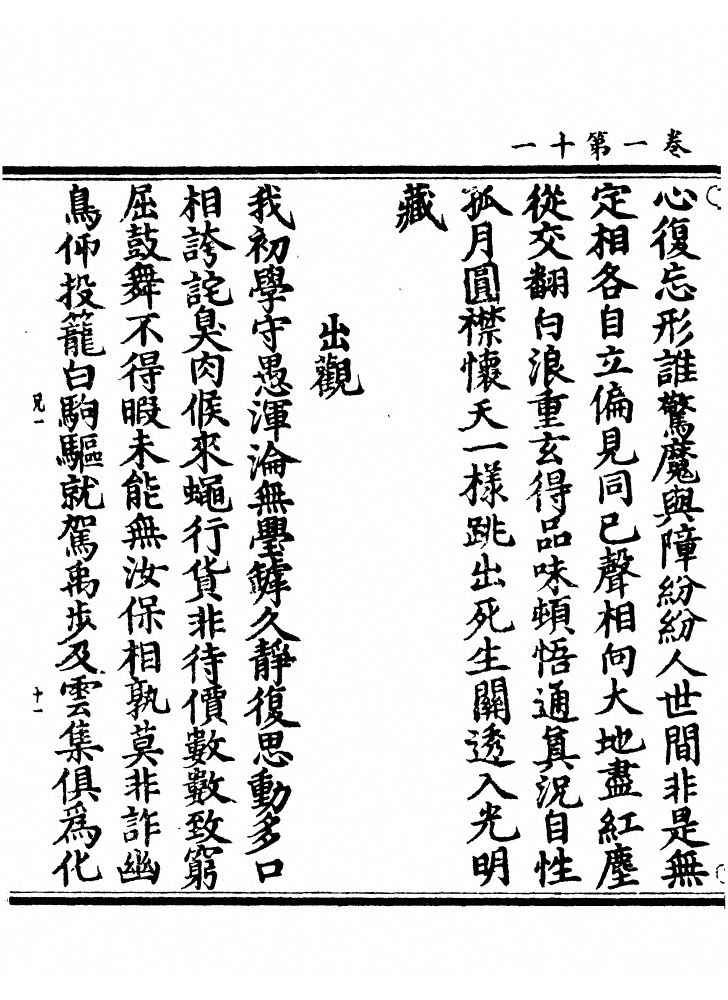 卷一第十一
心復忘形誰驚魔與障紛紛人世間非是無
定相各自立偏見同已聲相向大地盡紅塵
從交翻白浪重玄得品味頓悟通真況自性
孤月圓襟懷天一樣跳出死生關透入光明
藏
出觀
我初學守愚渾淪無璺罅久靜復思動多口
相誇詫臭肉候來蠅行貨非待價數數致窮
屈鼓舞不得暇未能無汝保相孰莫非詐幽
鳥仰投籠白駒驅就駕禹步及雲集俱為化
兄一
十一